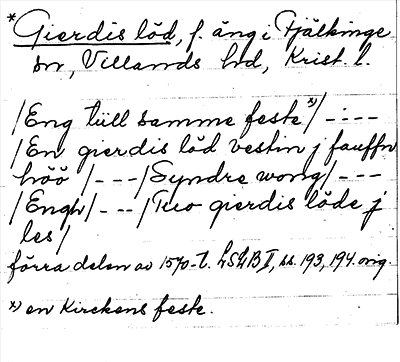 *Gierdis löd, f. äng i Fjälkinge
sn, Villands hd, Krist. l.
/Eng tiill samme feste x)/ -:--
/En gierdis löd vestin j fauffn
höö /---/Syndre wong/---
/Engh/---/Tuo gierdis löde j
les/
förra delen av 1570-t. LSLB II, ss. 193, 194. orig
x) en Kirckens feste.